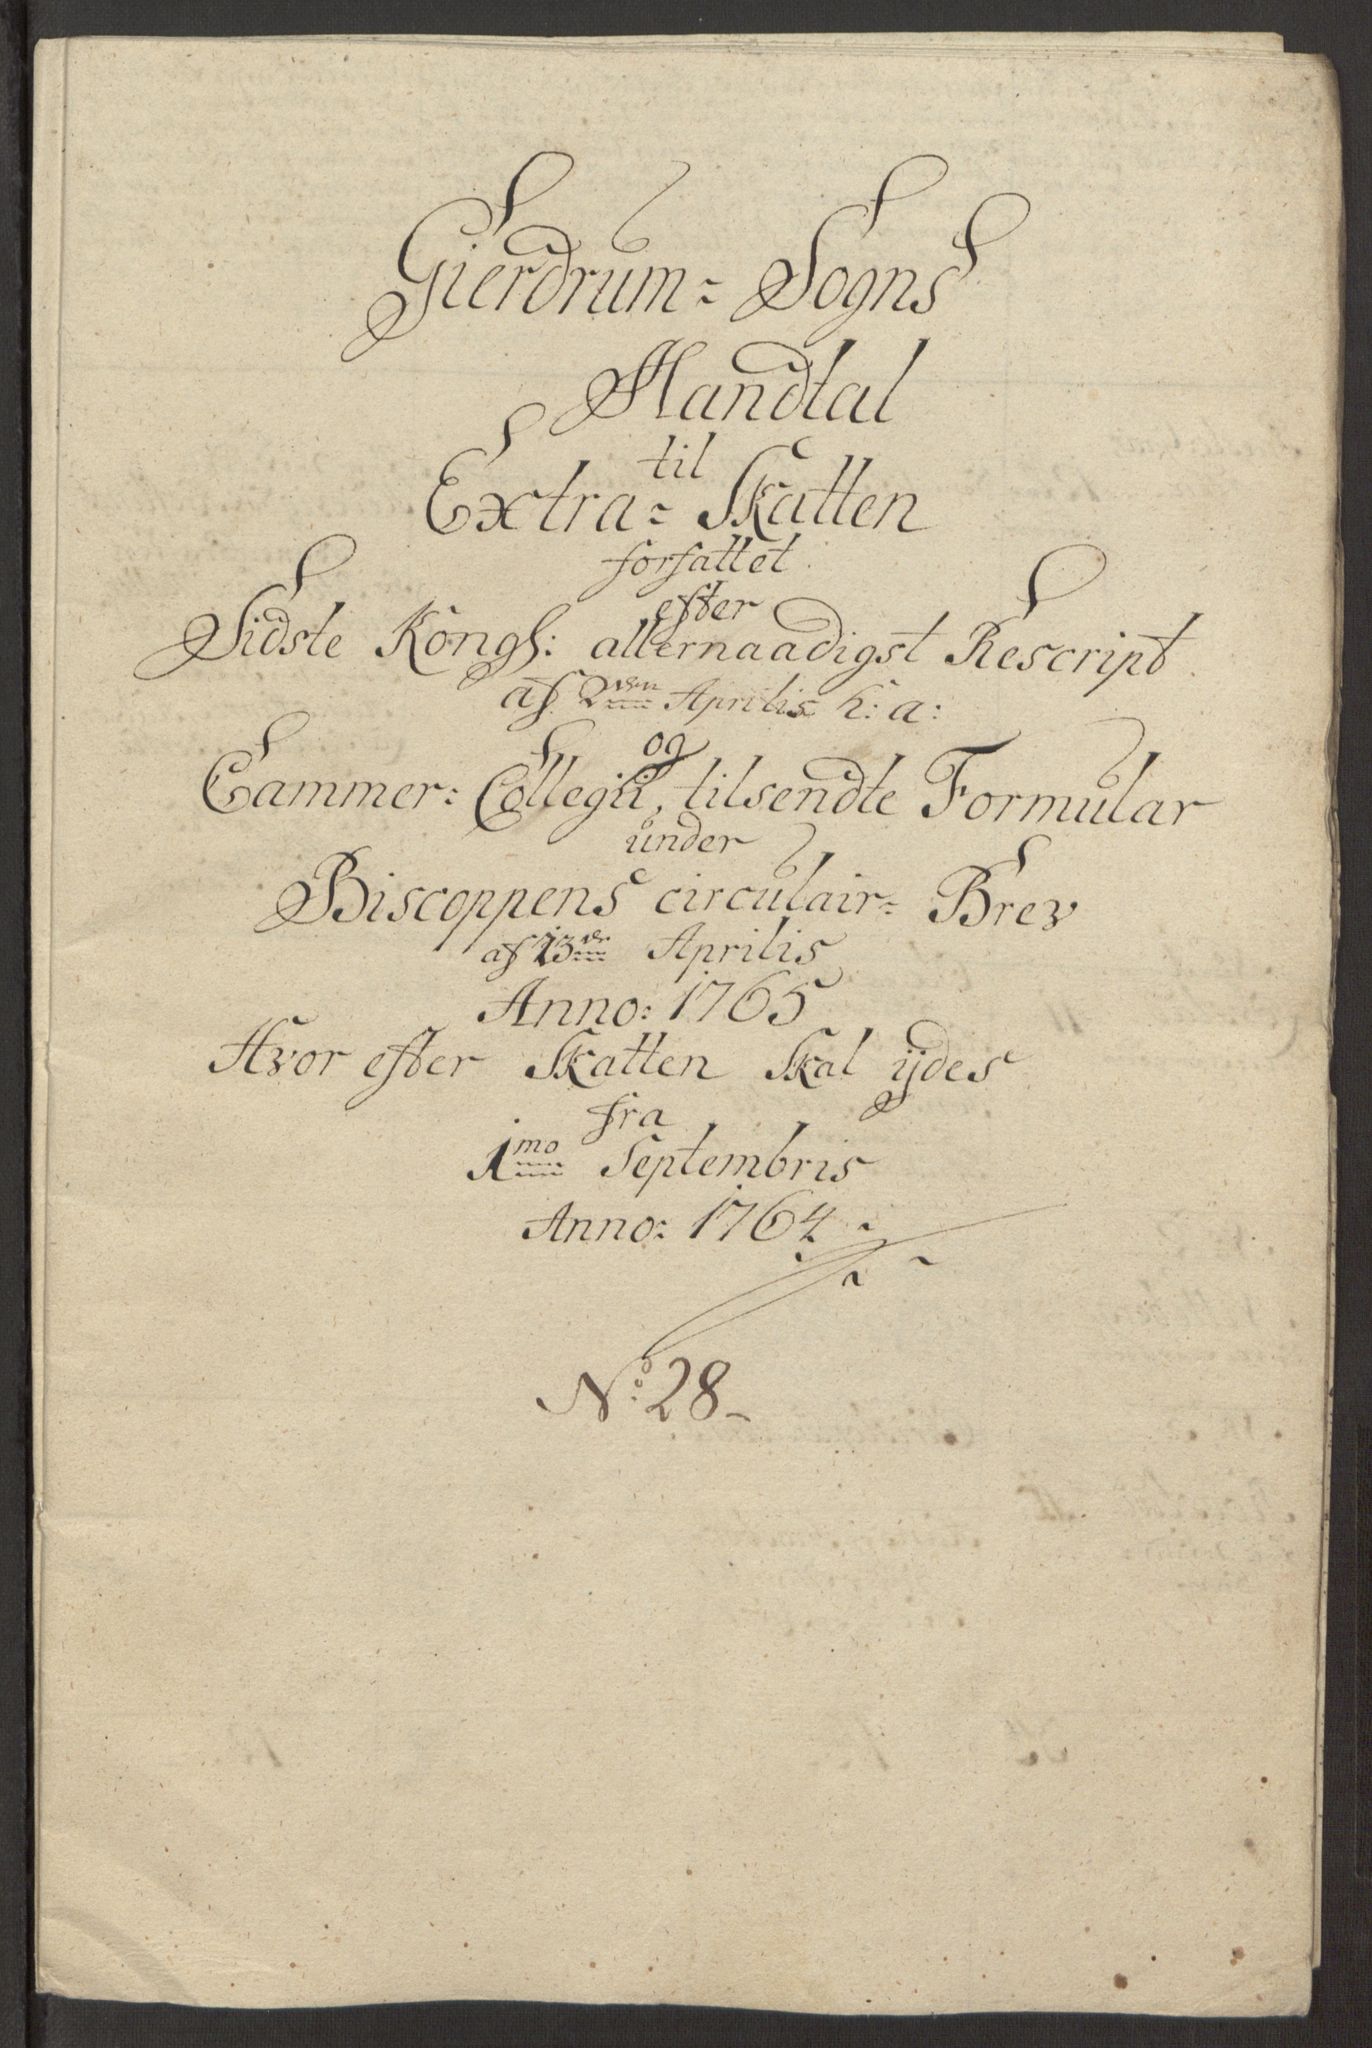 Gierdrum= Sogns
Mandtal
til
Extra= Skatten
forfattet
efter
Sidste Kongl: allernaadigst Rescript
af 2den Aprilis h: a:
og
Cammer: Collegii, tilsendte Formular
under
Biscoppens circulair= Brev
af 13de Aprilis
Anno: 1765
Hvor efter Skatten Skal ÿdes
fra
1mo Septembris
Anno: 1764
No: 28